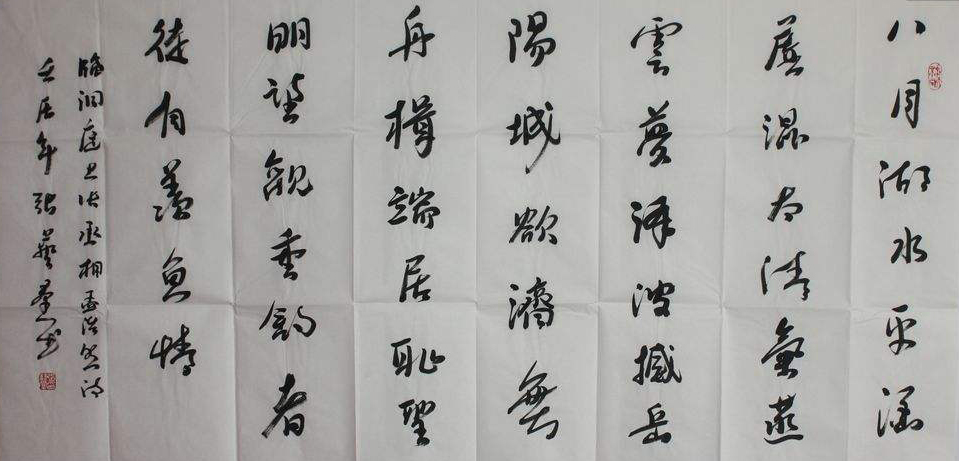 八月湖水平涵
虛混太清氣蒸
雲夢澤波撼岳
陽城欲濟無
舟楫端居耻聖
明坐觀垂釣者
徒有羡魚情
臨洞庭上張丞相孟浩然詩
壬辰年張藝群書